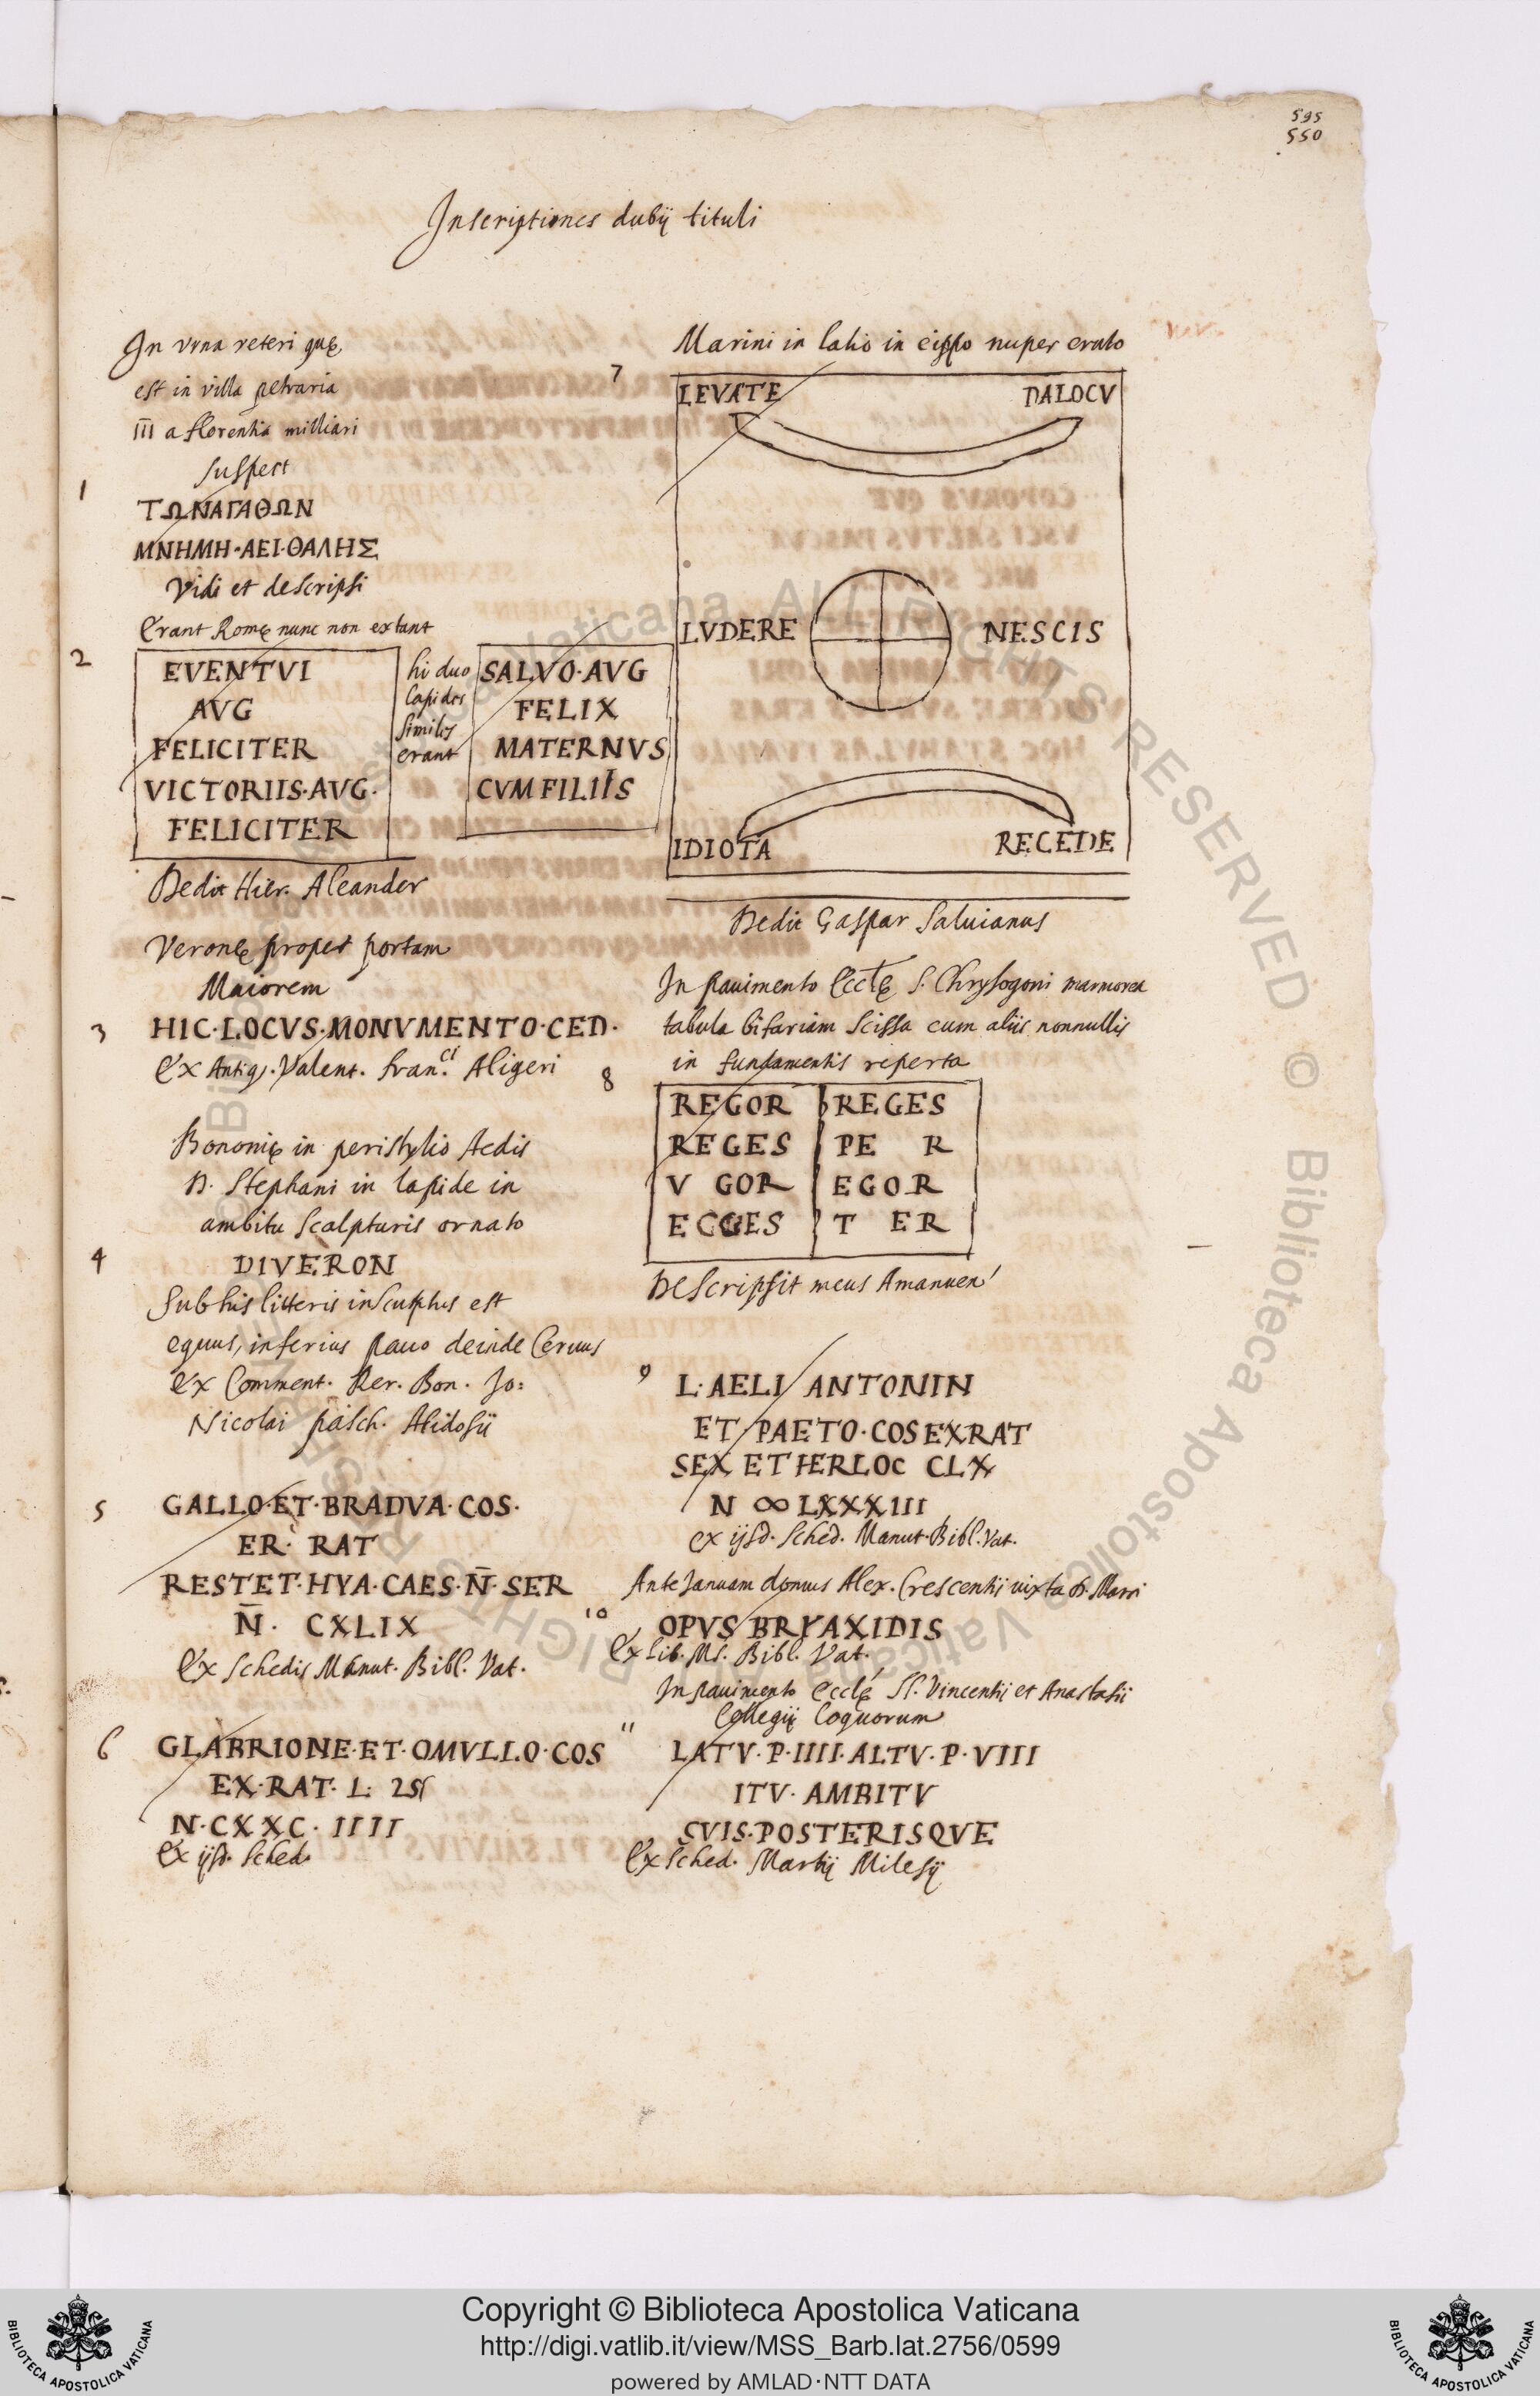 595
550
Inscriptiones dubij tituli
In vrna veteri quę
est in villa petraria
III a florentia milliari
suspect
1
ΤΩΝΑΓΑΘΩΝ
ΜΝΗΜΗ·ΑΕΙ·ΘΑΛΗΣ
Vidi et descripsi
Erant Romę nunc non extant
2
EVENTVI
AVG
FELICITER
VICTORIIS·AVG·
FELICITER
hi duo
lapides
similes
erant
SALVO·AVG
FELIX
MATERNVS
CVM FILIIS
Dedit Hier. Aleander
Veronę propes portam
Maiorem
3
HIC·LOCVS·MONVMENTO·CED·
Ex Antiq. Valent. fran.ci Aligeri
Bononię in peristylio Aedis
D. Stephani in lapide in
ambitu scalpturis ornato
4
DIVERON
Sub his litteris insculptus est
equus, inferius pauo deinde Ceruus
ex Comment. Rer. Bon. Jo:
Nicolai pasch. Alidosij
5
GALLO·ET·BRADVA·COS·
ER· RAT
RESTET·HYA·CAES·N̄·SER
N̄· CXLIX
Ex schedis Manut. Bibl. Vat.
6
GLABRIONE·ET·OMVLLO·COS
EX·RAT· L·
N·CXXC·IIII
Ex ijsd. sched.
Marini in latio in cippo nuper eruto
7
LEVATE DALOCV
LVDERE NESCIS
IDIOTA RECEDE
Dedit Gaspar Saluianus
In pauimento Ecclę S. Chrysogoni marmorea
tabula bifariam scissa cum aliis nonnullis
in fundamentis reperta
8
REGOR REGES
REGES PE R
V GOR EGOR
ECGES T ER
Descripsit meus Amanuen'
9
L·AELI ANTONIN
ET·PAETO·COS EXRAT
SEX ET HERLOC CLX
N ∞ LXXXIII
ex ijsd. sched. Manut. Bibl. Vat.
Ante Januam domus Alex. Crescentij iuxta
10
OPVS BRYAXIDIS
Ex Lib. Ms. Bibl. Vat.
In pauimento Ecclę SS. Vincentij et Anastasii
Collegij Coquorum
11
LATV·P·IIII·ALTV·P·VIII
ITV·AMBITV
SVIS·POSTERISQVE
Ex sched. Martij Milesij
Biblioteca Apostolica Vaticana ALL RIGHTS RESERVED ©
Copyright © Biblioteca Apostolica Vaticana
http://digi.vatlib.it/view/MSS_Barb.lat.2756/0599
powered by AMLAD·NTT DATA
BIBLIOTECA APOSTOLICA VATICANA
BIBLIOTECA APOSTOLICA VATICANA